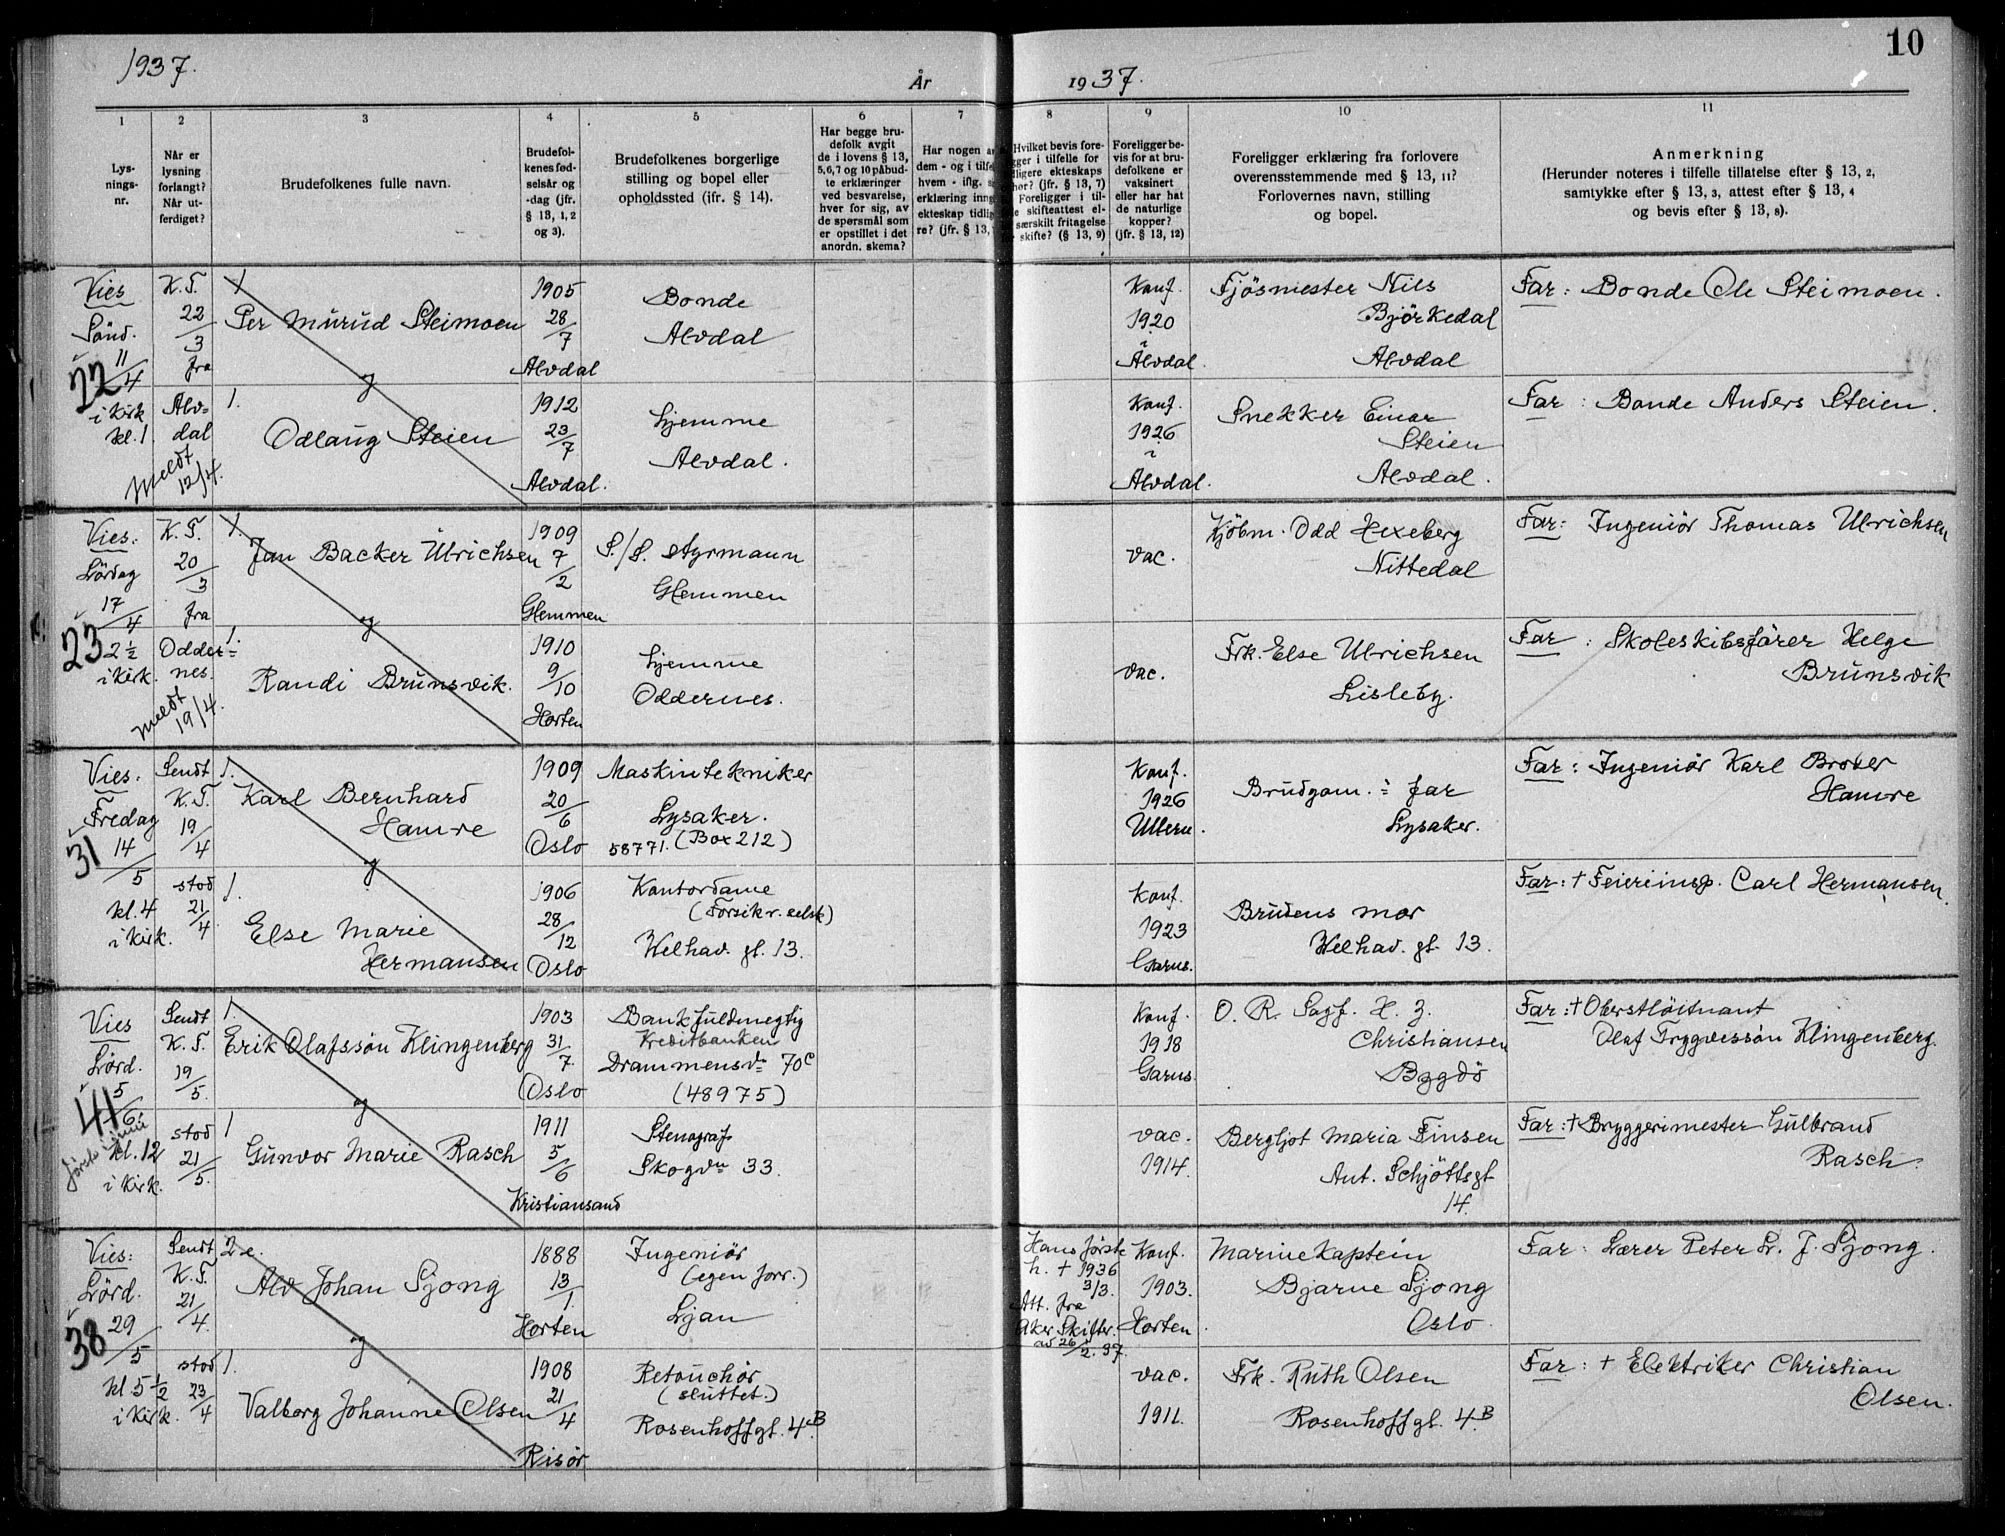 10
1937.
År
1937.
1
2
3
4
5
6
7
8
9
10
11
Lys-
nings-
nr.
Når er
lysning
forlangt?
Når ut-
ferdiget?
Brudefolkenes fulle navn.
Brudefol-
kenes fød-
selsår og
-dag (jfr.
§ 13, 1, 2
og 3).
Brudefolkenes borgerlige
stilling og bopel eller
opholdssted (ifr. § 14).
Har begge bru-
defolk avgit
de i lovens § 13,
5,6,7 og 10 påbud-
te erklæringer
ved besvarelse,
hver for sig, av
de spørsmål som
er opstillet i det
anordn. skema?
Har nogen a
dem - og i tilfe
hvem - iflg. s
erklæring inng
ekteskap tidlig
re? (jfr. § 13,
Hvilket bevis fore-
gger i tilfelle for
dligere ekteskaps
hør? (jfr. § 13, 7)
Foreligger i til-
le skifteattest el-
særskilt fritagelse
skifte? (§ 13, 9)
Foreligger be-
vis for at bru-
defolkene er
vaksinert
eller har hat
de naturlige
kopper?
(jfr. § 13, 12)
Foreligger erklæring fra forlovere
overensstemmende med § 13, 11?
Forlovernes navn, stilling
og bopel.
Anmerkning
(Herunder noteres i tilfelle tillatelse efter § 13, 2,
samtykke efter § 13, 3, attest efter § 13, 4
og bevis efter § 13, 8).
Vies
Sönd.
11/4
22
i Kirk
kl. 1.
K. F.
22/3
fra
Alv=
dal
Meldt
12/4.
1.
Per Murud Steimoen
og
1.
Odlaug Steien
1905
28/7
Alvdal
1912
23/7
Alvdal.
Bonde
Alvdal
Hjemme
Alvdal.
Konf.
1920
i
Alvdal.
Konf.
1926
i
Alvdal.
Fjösmester Nils
Björkedal
Alvdal
Snekker Einar
Steien
Alvdal.
Far: Bonde Ole Steimoen.
Far: Bonde Anders Steien.
Vies:
Lördag
17/4
23
2 ½
i Kirk.
K. F.
20/3
fra
Odder=
nes.
Meldt
19/4.
1.
Jan Backer Ulrichsen
og
1.
Randi Brunsvik.
1909
7/2
Glemmen
1910
9/10
Horten
S./S. styrmann
Glemmen
Hjemme
Oddernes.
vac.
vac.
Kjöbm. Odd Hexeberg
Nittedal
Frk. Else Ulrichsen
Lisleby.
Far: Ingeniör Thomas Ulrichsen
Far: Skoleskibsförer Helge
Brunsvik
Vies:
Fredag
14/5
31
kl. 4
i Kirk.
Sendt
K. F.
19/4
stod
21/4
1.
Karl Bernhard
Hamre
og
1.
Else Marie
Hermansen
1909
20/6
Oslo
1906
28/12
Oslo
Maskintekniker
Lysaker.
58771. (Box 212)
Kontordame
(Forsikr. selsk)
Welhav. gt. 13.
Konf.
1926
Ullern.
Konf.
1923
Garns.
Brudgom. s far
Lysaker.
Brudens mor
Welhav. gt. 13.
Far: Ingeniör Karl Brover
Hamre
Far: † Feierinsp. Carl Hermansen.
Vies
Lörd.
5/6
41
förste i juni
kl. 12
i Kirk.
Sendt
K. F.
19/5.
stod
21/5.
1.
Erik Olafssön Klingenberg
og
1
Gunvor Marie Rasch
1903
31/7.
Oslo
1911
5/6
Kristiansand
Bankfuldmegtig
Kreditbanken
Drammensv. 70 C
(48975)
Stenograf
Skogvn 33.
Konf.
1918
Garns.
vac.
1914.
O. R. Sagf. H. Z.
Christiansen
Bygdö
Bergljot Maria Finsen
Ant. Schjöttsgt
14.
Far: † Oberstlöitnant
Olaf Trygvessön Klingenberg.
Far: † Bryggerimester Gulbrand
Rasch.
Vies:
Lörd.
29/5
38
kl 5 ½
i Kirk.
Sendt
K. F.
21/4.
stod
23/4
2 e.
Alv Johan Sjong
og
1.
Valborg Johanne Olsen
1888
13/1.
Horten
1908
21/4
Risör
Ingeniör
(egen forr.)
Ljan
Retouchör
(sluttet.)
Rosenhoffgt. 4 B.
Hans förste
h. † 1936
3/3.
Att. fra
Aker Skifter.
av 26/2. 37.
Konf.
1903.
Horten.
vac.
1911.
Marinekaptein
Bjarne Sjong
Oslo.
Frk. Ruth Olsen
Rosenhoffgt. 4 B.
Far: Lærer Peter L. J. Sjong.
Far: † Elektriker Christian
Olsen.